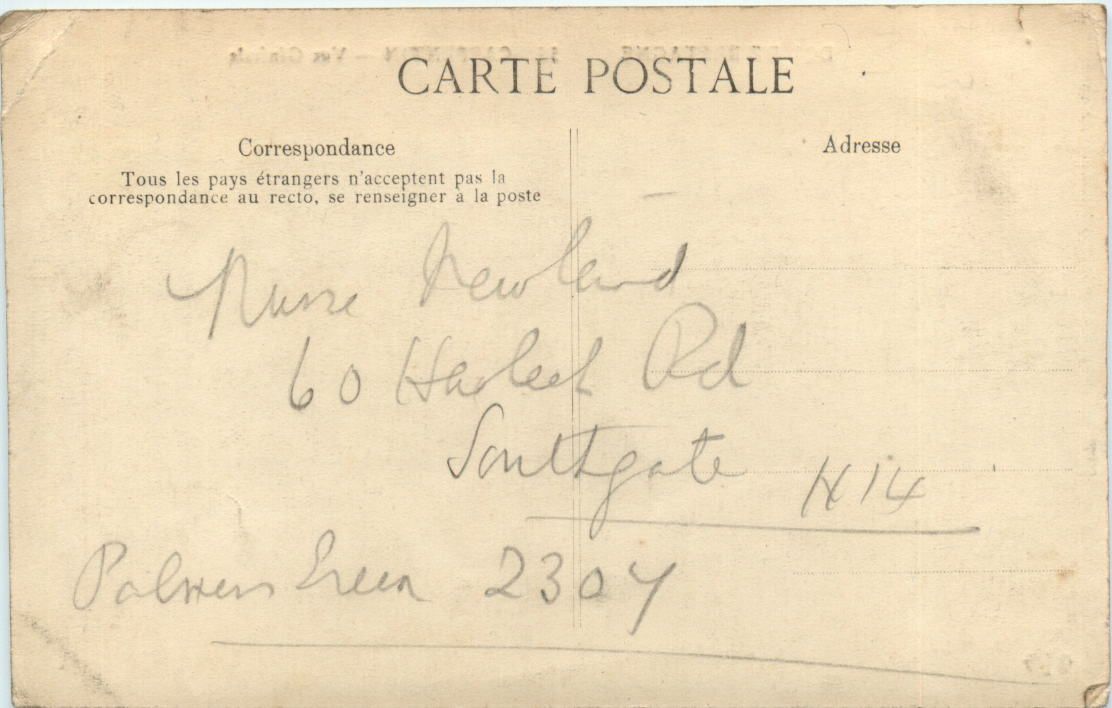 CARTE POSTALE
Correspondance
Adresse
Tous les pays étrangers n'acceptent pas la
correspondance au recto, se renseigner à la poste
Nurse Newland
60 Harlech Rd
Southgate N14
Palmers Green 2304